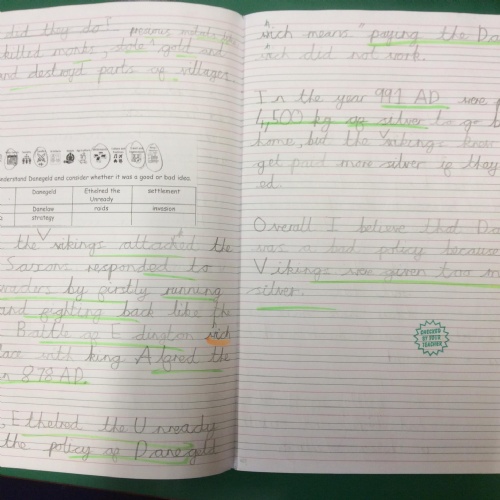 did they do? precious metals like
killed monks, stole gold and
and destroyd parts of villages.
understand Danegeld and consider whether it was a good or bad idea.
Danegeld Ethelred the Unready settlement
Danelaw raids invasion
strategy
the Vikings attacked the
Saxons responded to
vaders by firstly running
and fighting back like the
Battle of Edington wich
lace with king Alfred the
in 878 AD.
Ethelred the Unready
the policy of Danegeld
wich means "paying the Da
wich did not work.
In the year 991 AD were
4,500 kg of silver to go b
home, but the vikings knew
get paid more silver if they
ed.
Overall I believe that Da
was a bad policy because
Vikings was given too m
silver.
CHECKED
BY YOUR
TEACHER